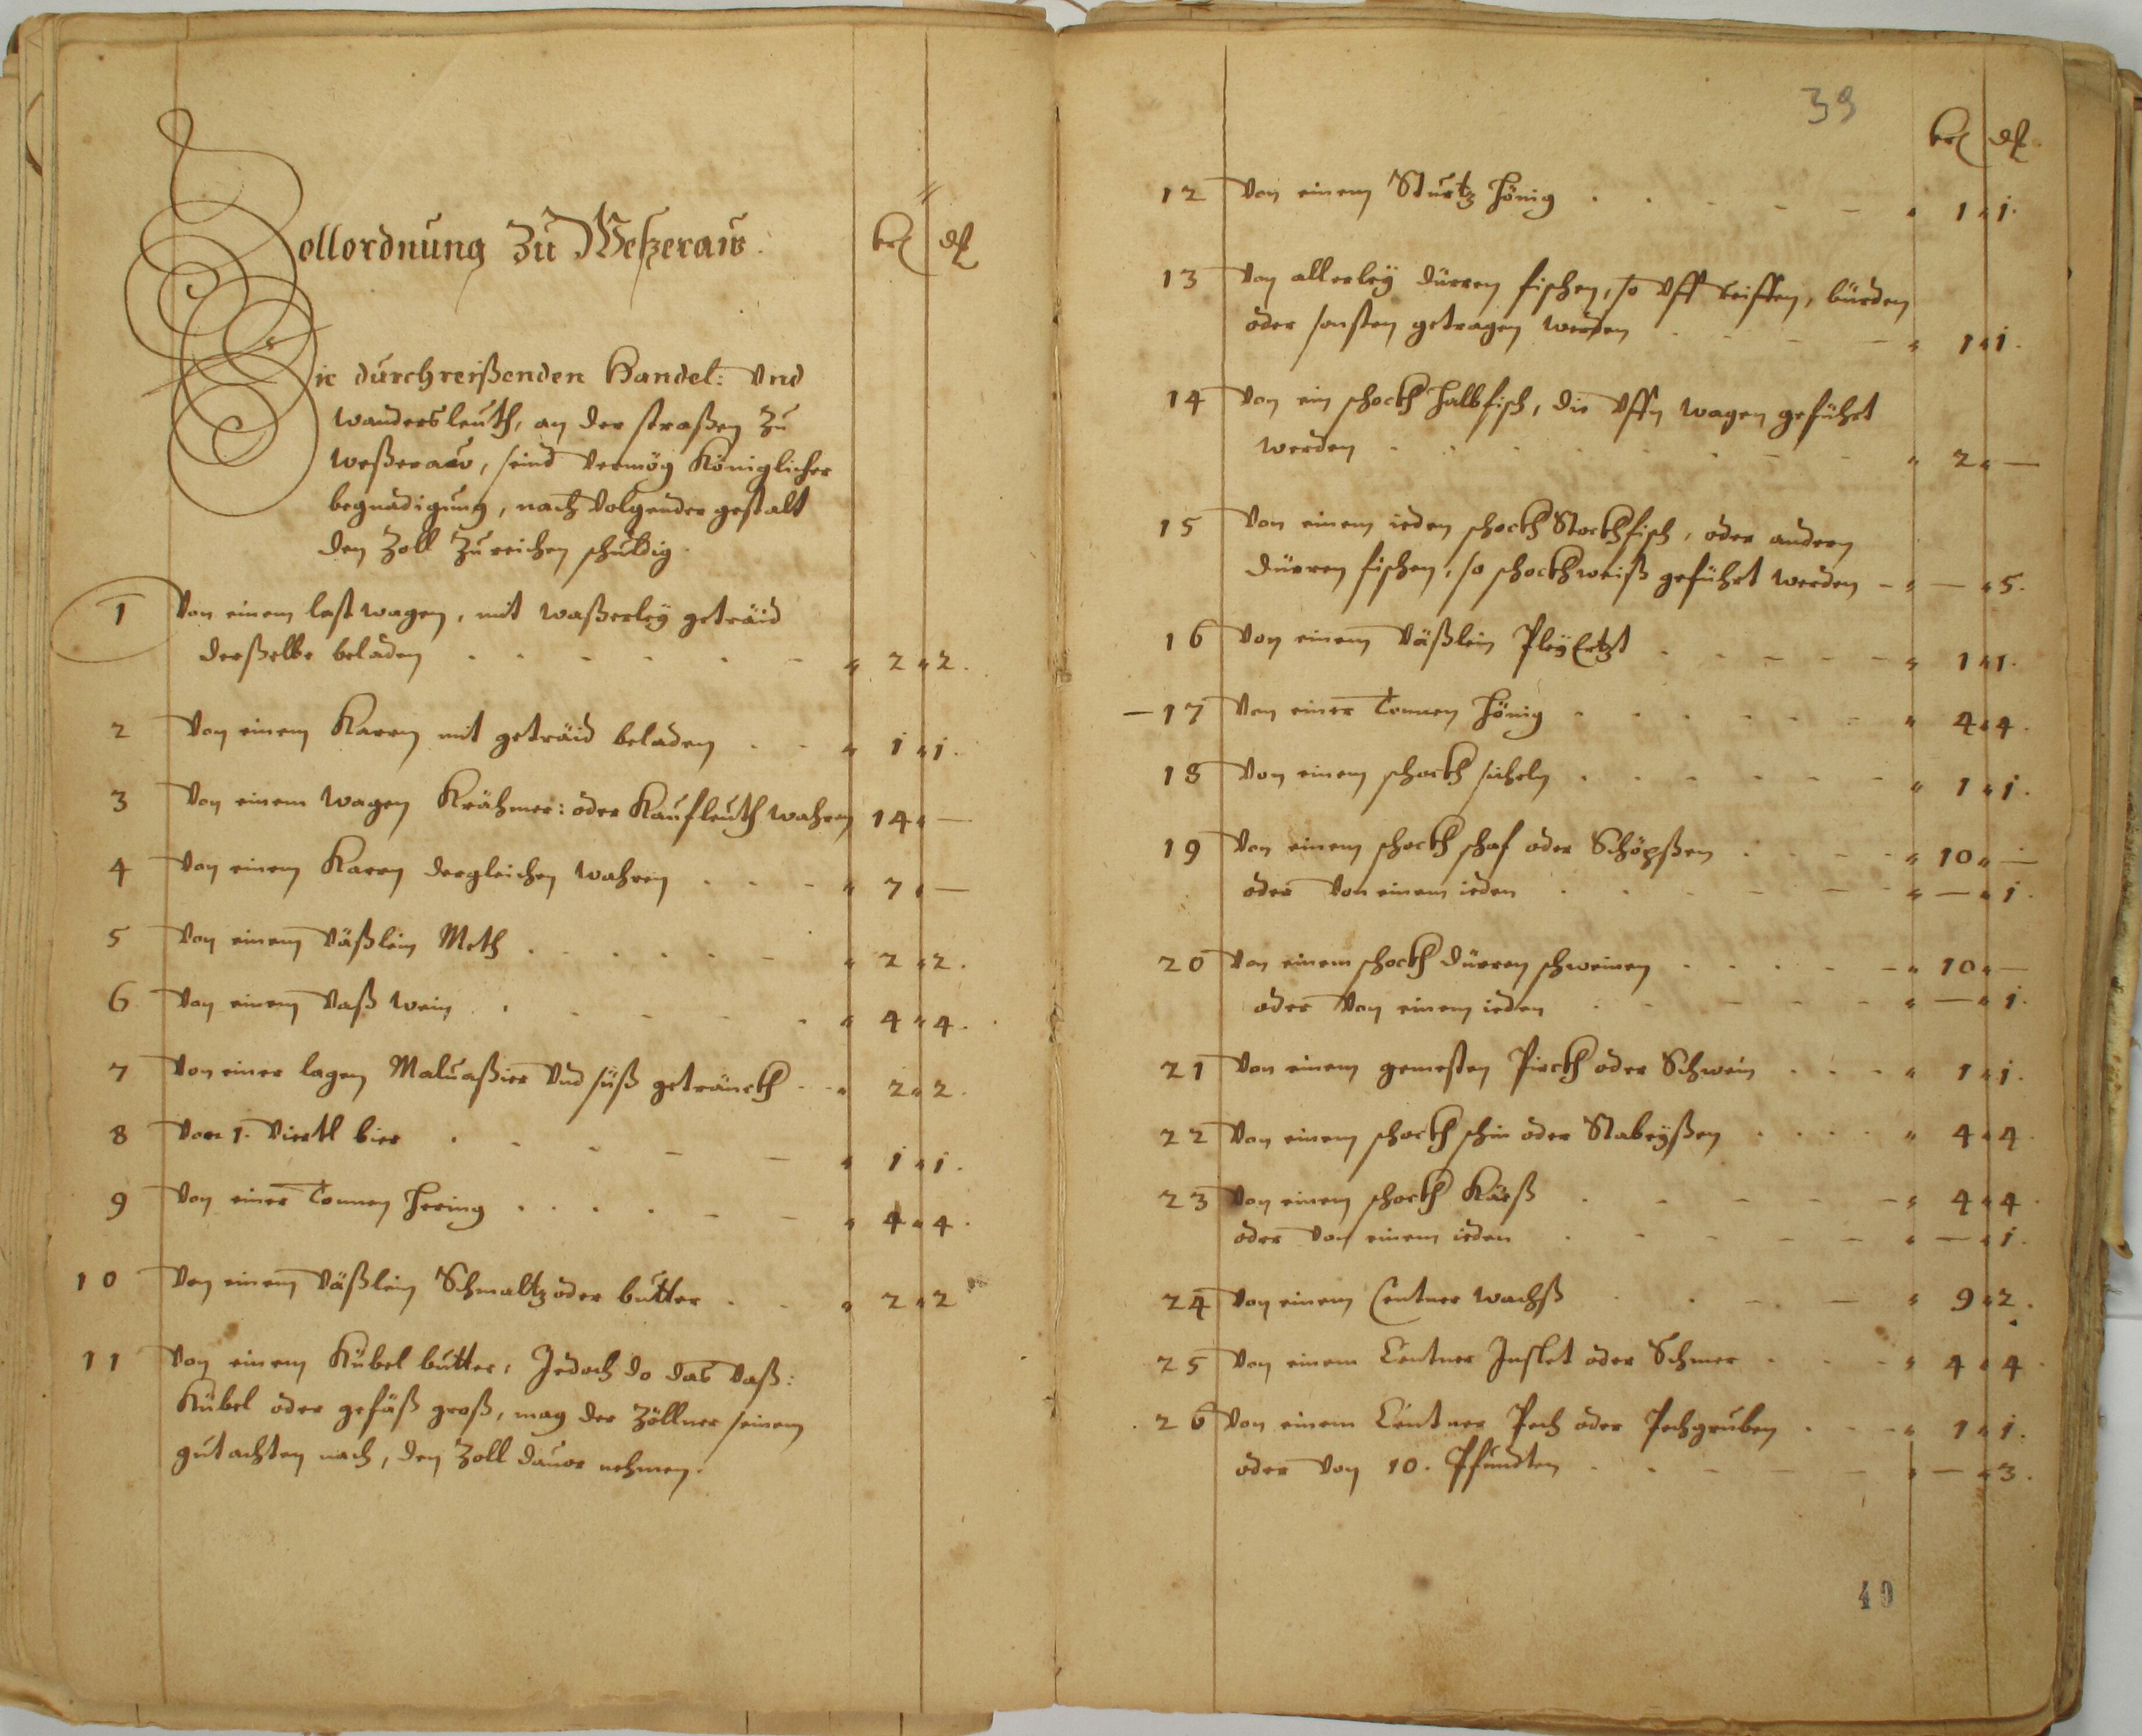 Zollordnung Zu Weßeraw. kr. dl.
Die durchreißenden Handel: Vnd
wandersleuth, an der straßen Zu
weßeraw, seind Vermög Königlicher
begnadigung, nach Volgender gestalt
den Zoll Zu reichen schuldig.
1 Von einem last wagen, mit waßerley geträid
derßelbe beladen . . . . . . 2 " 2.
2 Von einem Karrn mit geträid beladen . . 1 " 1.
3 Von einem wagen Krähmer: oder Kaufleuth wahren 14 " —
4 Von einem Karrn dergleichen wahren . . . 7 " —
5 Von einem Väßlein Meth . . . . . . 2 " 2.
6 Von einem Vaß wein . . . . . . 4 " 4.
7 Von einer lagen Maluaßier Vnd süß geträncth . . 2 " 2.
8 Von 1. Viertl bier . . . . . 1 " 1.
9 Von einer Tonnen Hering . . . . . . 4 " 4.
10 Von einem Väßlein Schmaltz oder butter . . 2 " 2
11 Von einem Kübel butter, Jedoch do das Vaß:
Kübel oder gefäß groß, mag der Zöllner seinem
gutachten nach, den Zoll dauor nehmen.
39
kr. dl.
12 Von einem Sturtz Hönig . . . . . 1 " 1.
13 Von allerley dürren fischen, so Vff reiffen, bürden
oder sonsten getragen werden . . . . 1 " 1.
14 Von ein schockh Halbfisch, die Vffn wagen geführt
werden . . . . . . . 2 " —
15 Von einem ieden schockh Stockhfisch, oder andern
dürren fischen, so schockhweiß geführt werden — " 5.
16 Von einem Väßlein Pley Ertzt . . . . . 1 " 1.
— 17 Von einer Tonnen Hönig . . . . . . 4 " 4.
18 Von einem schockh sicheln . . . . . . 1 " 1.
19 Von einem schockh schaf oder Schöpßen . . . . 10 " —
oder Von einem ieden . . . . . . — " 1.
20 Von einem schockh dürren schweinen . . . . . 10 " —
oder Von einem ieden . . . . . — " 1.
21 Von einem gemesten Pirckh oder Schwein . . . 1 " 1.
22 Von einem schockh schin oder Stabeyßen . . . . 4 " 4.
23 Von einem schockh Käeß . . . . . 4 " 4.
oder Von einem ieden . . . . . . — " 1.
24 Von einem Centner wachß . . . . 9 " 2.
25 Von einem Centner Inslet oder Schmer . . . 4 " 4.
26 Von einem Centner Pech oder Pechgruben . . . 1 " 1.
oder Von 10. Pfundten . . . . . — " 3.
40